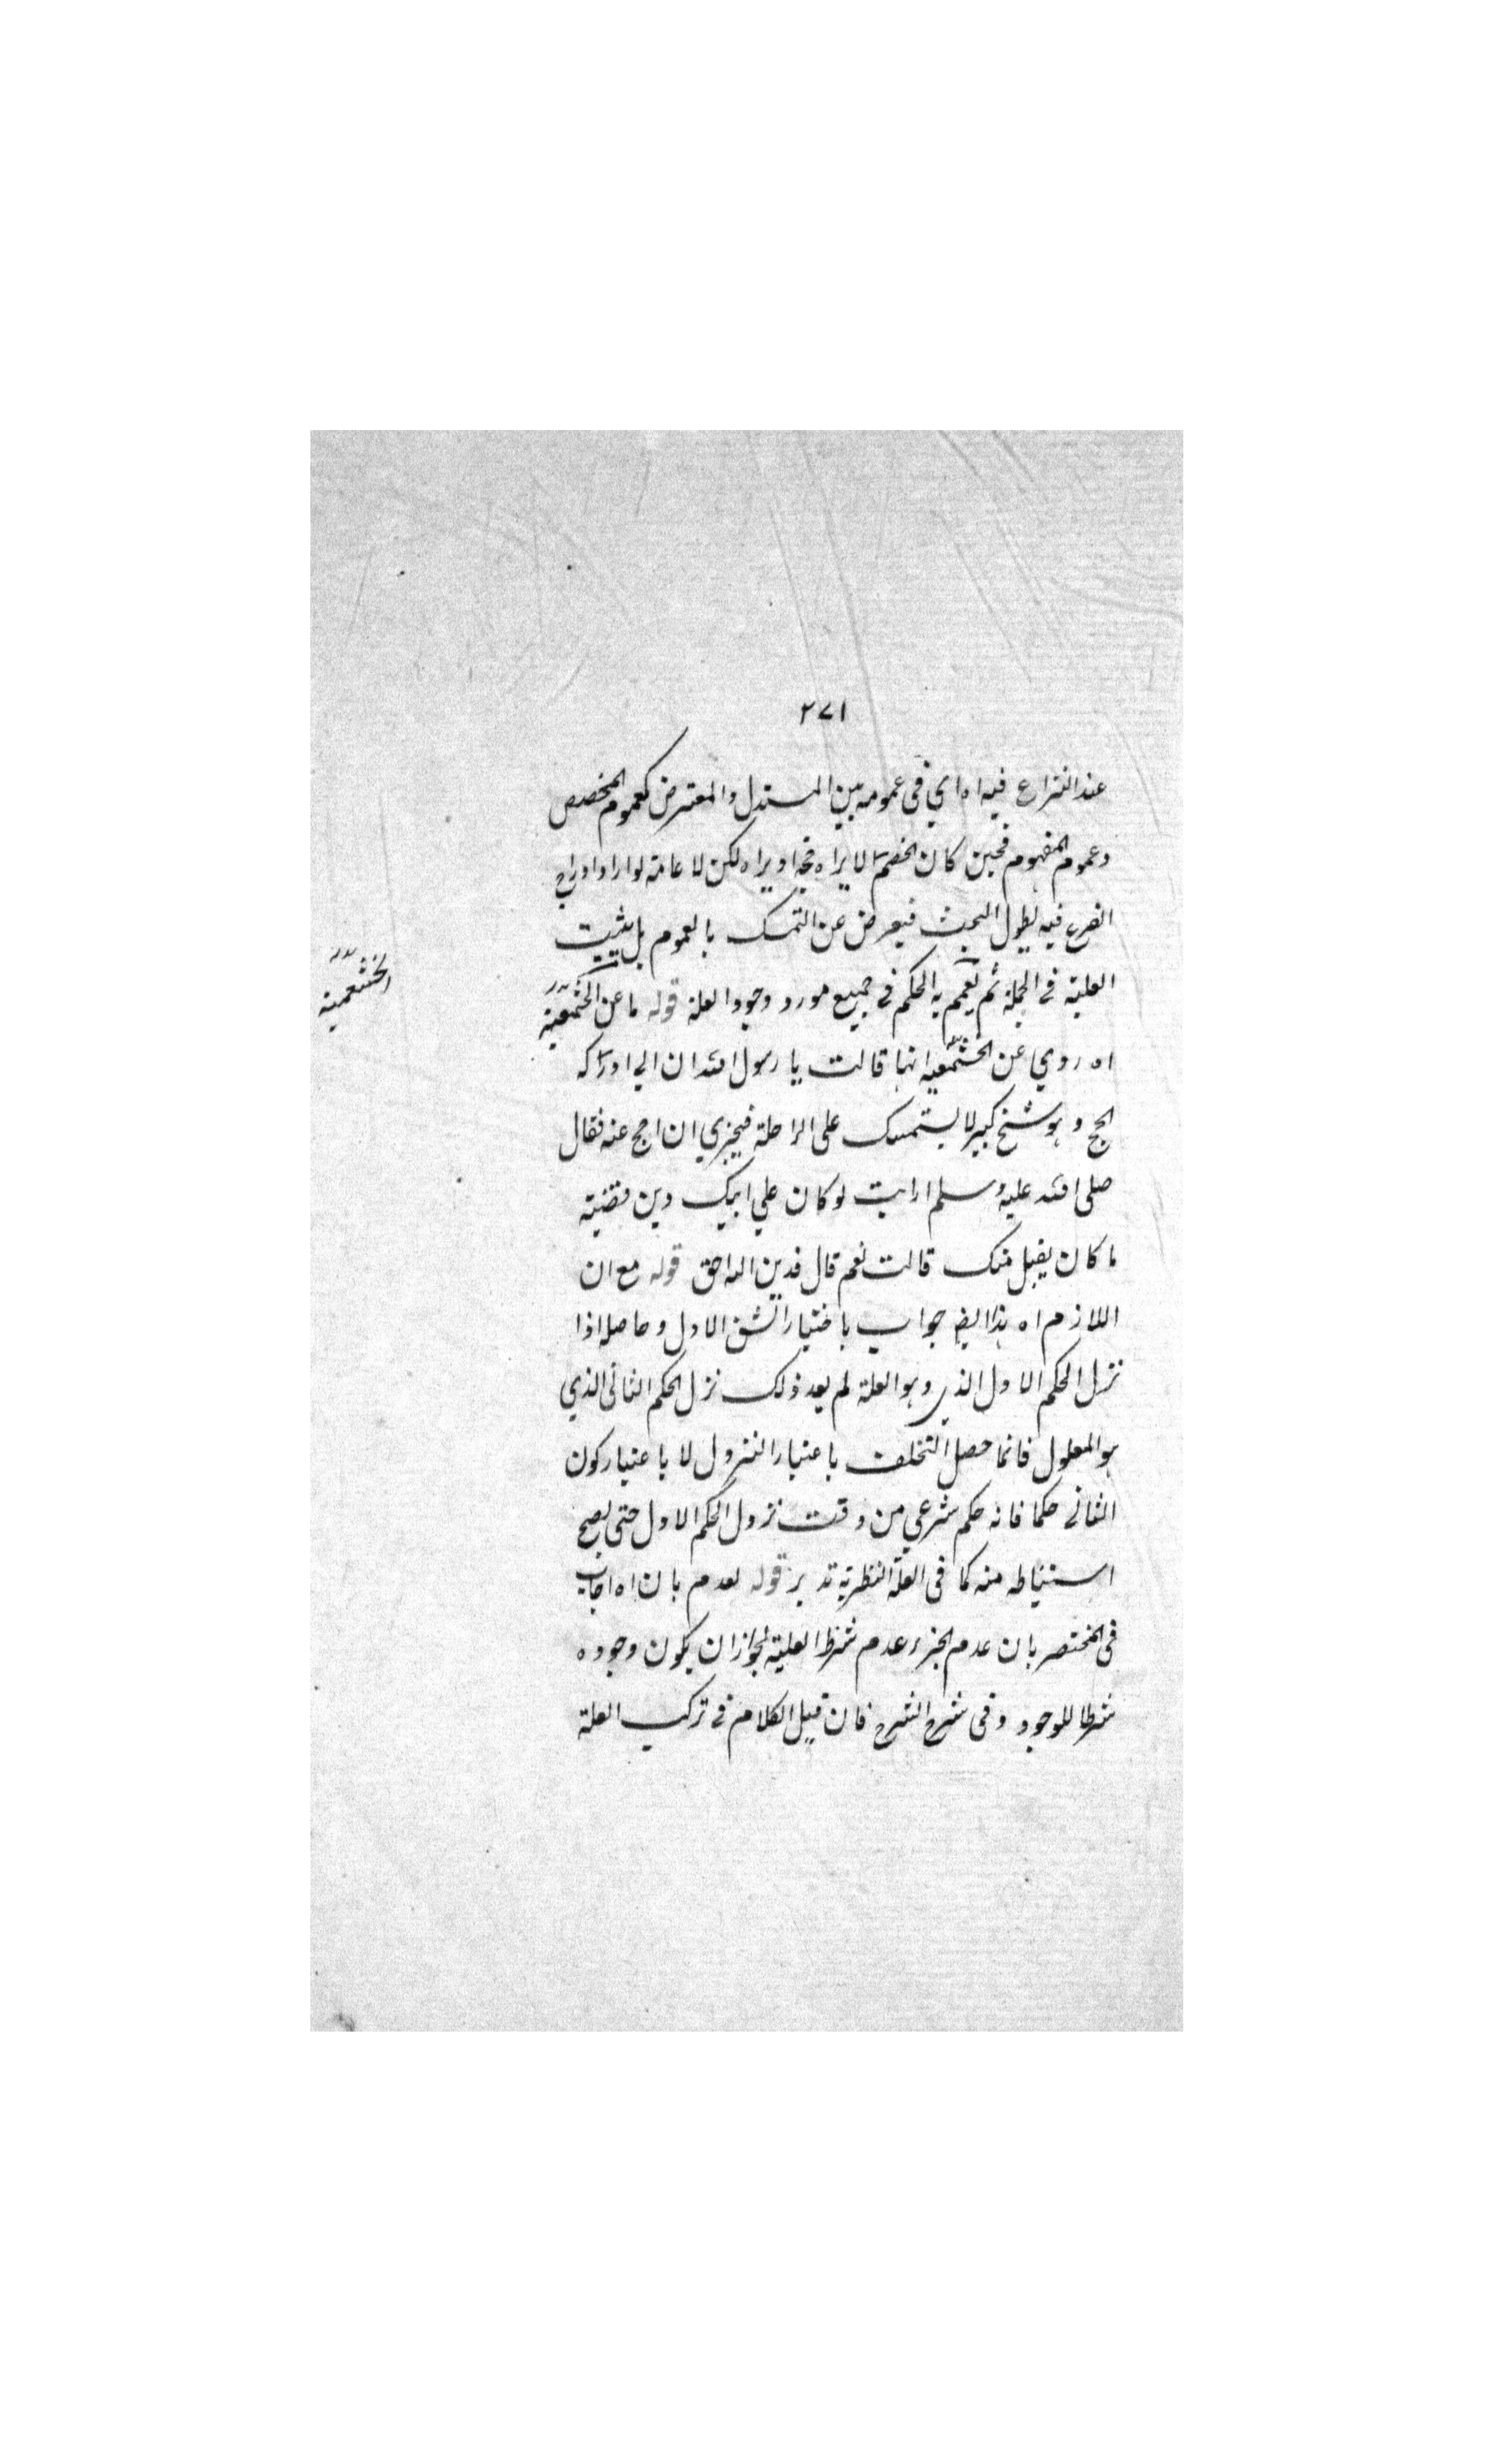 ٢٧١
عند النزاع فيه اه اي في عمومه بين المستدل والمعترض كعموم المخصص
وعموم المفهوم فحين كان الخصم لا يراه حجة او يراه لكن لا عامة لو اراد ادراج
الفرع فيه يطول البحث فيعرض عن التمسك بالعموم بل يثبت
العلية في الجملة ثم يعمم به الحكم في جميع مورد وجود العلة قوله ما عن الخثعمية
الخثعمية
اه روي عن الخثعمية انها قالت يا رسول الله ان ابي ادركه
الحج وهو شيخ كبير لا يستمسك على الراحلة فيجزي ان احج عنه فقال
صلى الله عليه وسلم ارايت لو كان علي ابيك دين فقضيته
ما كان يقبل منك قالت نعم قال فدين الله احق قوله مع ان
اللازم اه هذا ايضا جواب باختيار الشق الاول وحاصله اذا
نزل الحكم الاول الذي وهو العلة لم يعد ذلك نزل الحكم الثاني الذي
هو المعلول فانما حصل التخلف باعتبار النزول لا باعتبار كون
الثاني حكما فانه حكم شرعي من وقت نزول الحكم الاول حتى يصح
استنباطه منه كما في العلة النظرية تدبر قوله لعدم بان اه اجاب
في المختصر بان عدم الجزء عدم شرط العلية لجواز ان يكون وجوده
شرطا للوجود وفي شرح الشرح فان قيل الكلام في تركيب العلة